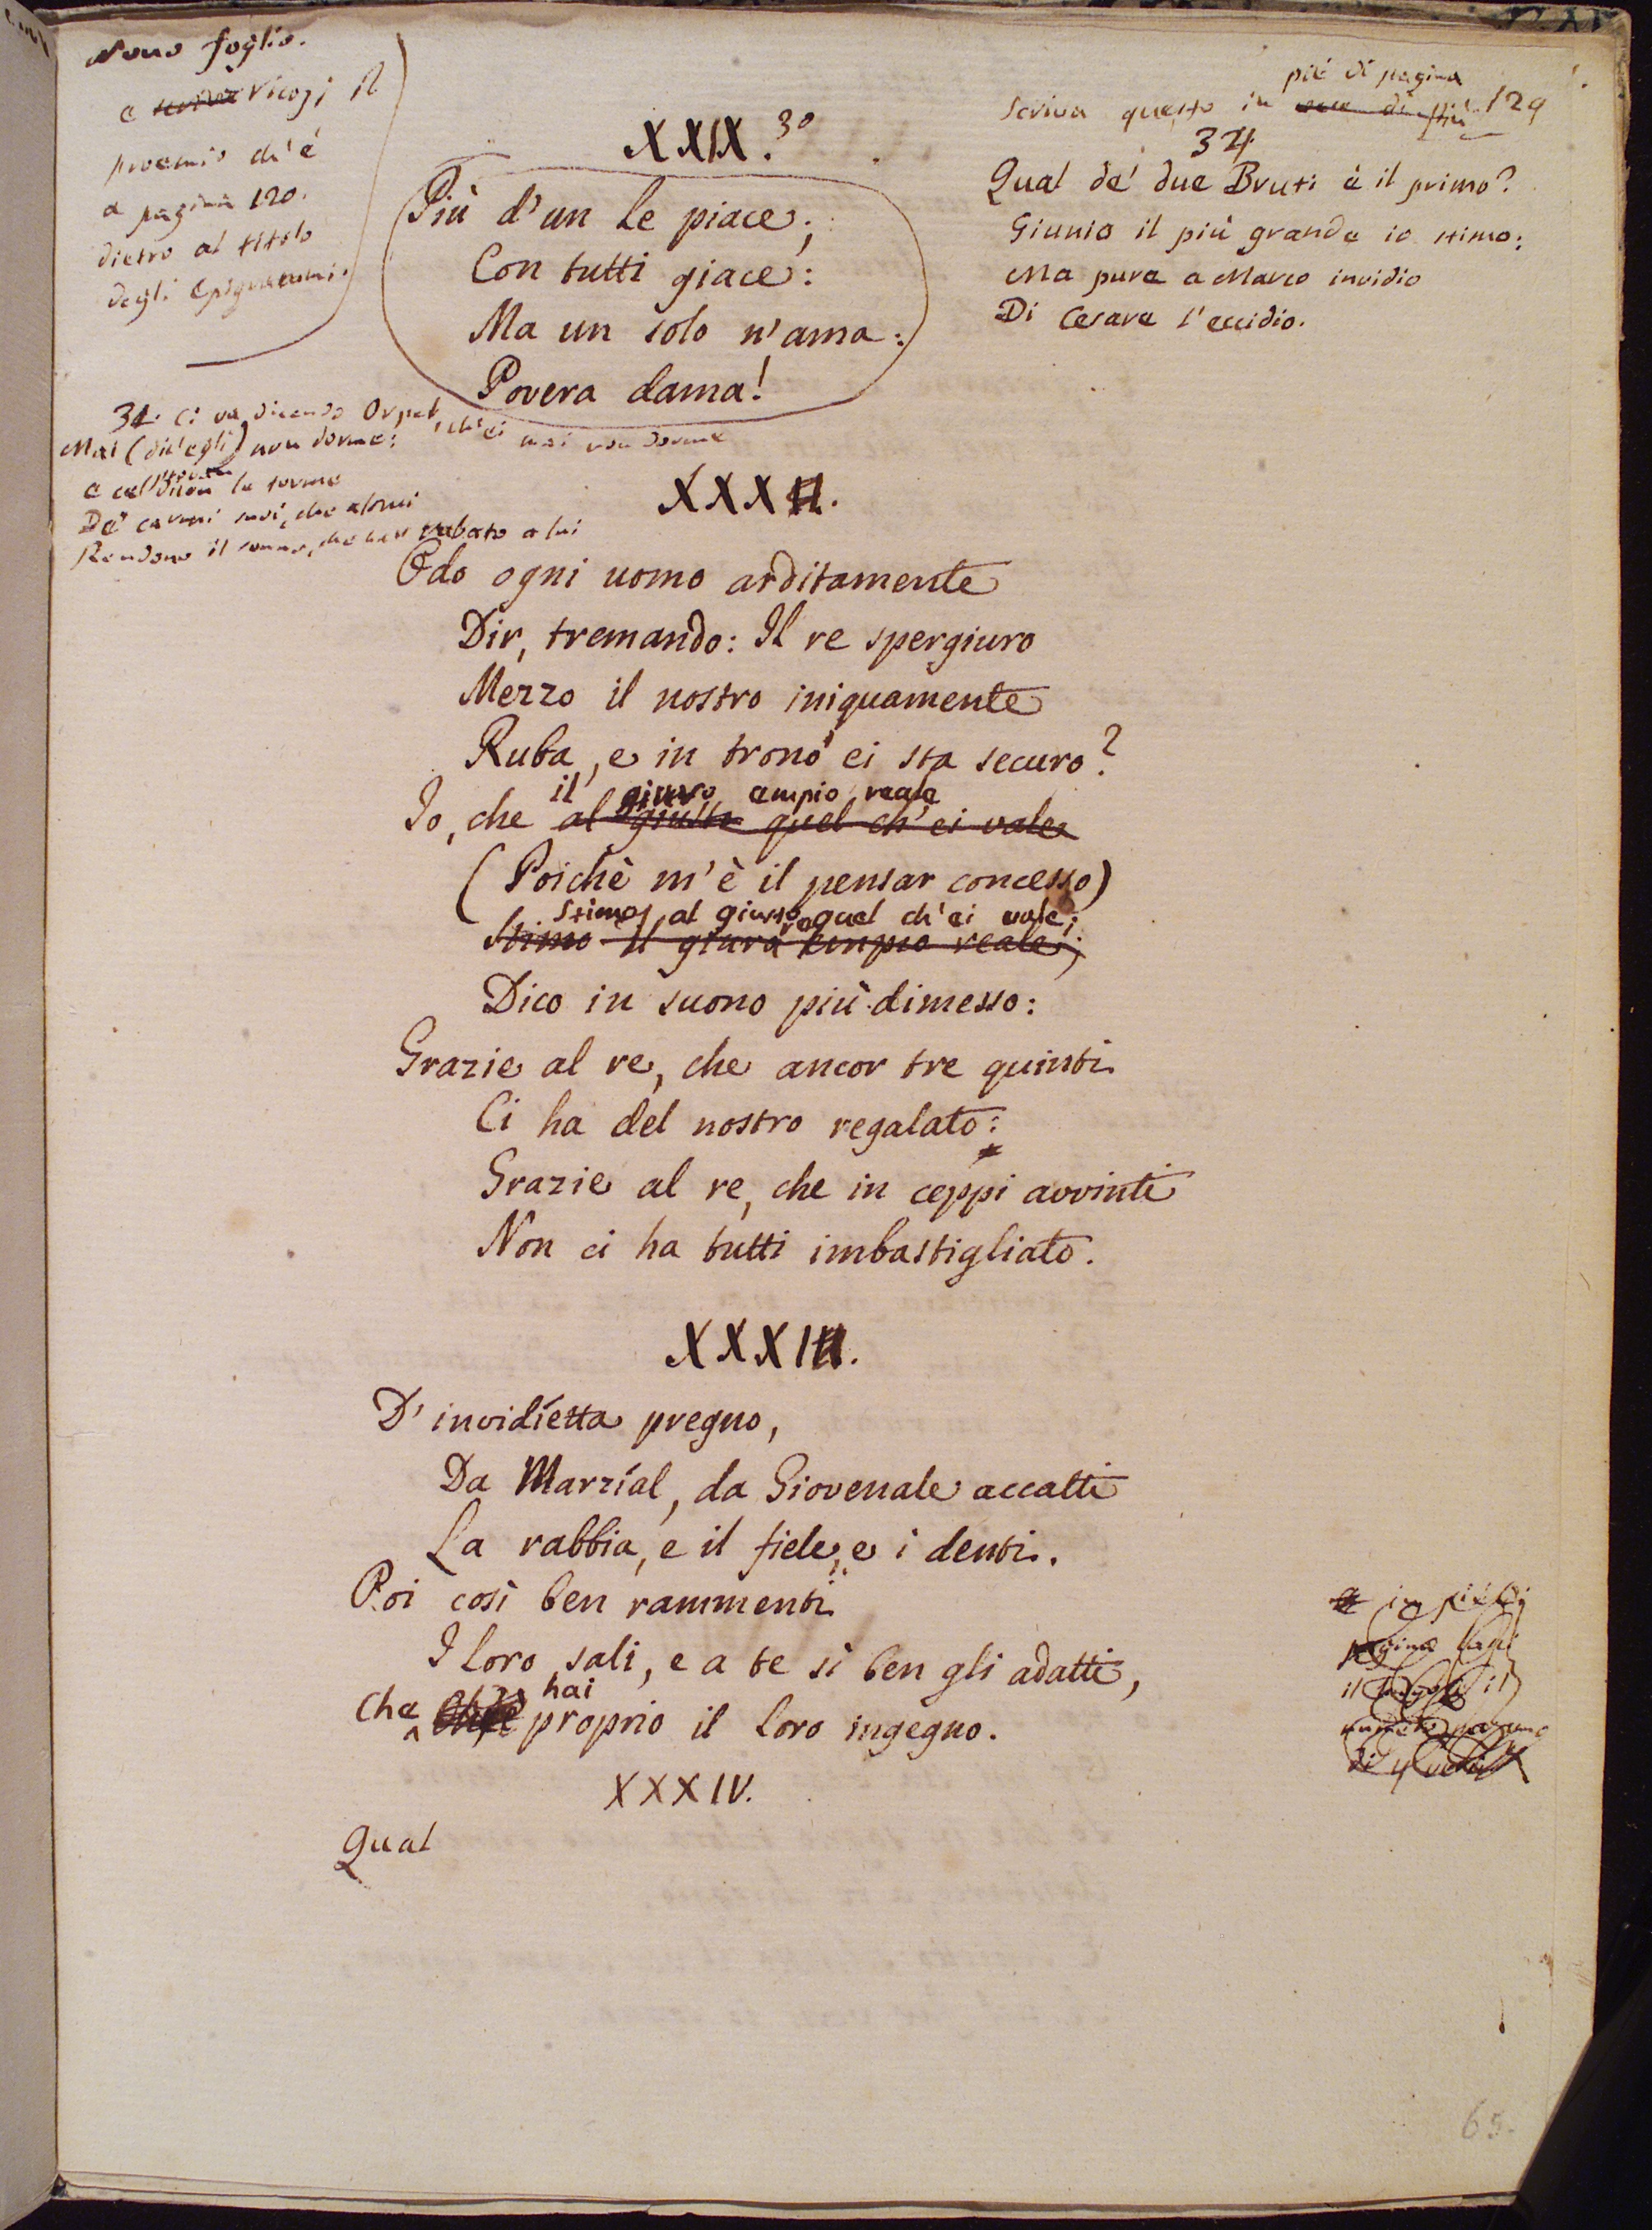 Nono foglio.
e ricopj il
proemio ch'è
a pagina 120.
dietro al titolo
degli Epigrammi.
piè di pagina
Scriva questo in 129
34
Qual de' due Bruti è il primo?
Giunio il più grande io stimo:
Ma pure a Marco invidio
Di Cesare l'eccidio.
XXIX. 30
Più d'un le piace;
Con tutti giace:
Ma un solo n'ama:
Povera dama!
31. Ci va dicendo , ch'ei mai non dorme
Mai (dic'egli) non dorme:
e le forme
De' carmi suoi, che altrui
Rendono il sonno, che han rubato a lui
XXXII.
Odo ogni uomo arditamente
Dir, tremando: Il re spergiuro
Mezzo il nostro iniquamente
Ruba, e in trono ei sta securo?
il giuro empio reale
Io, che al giusto quel ch'ei vale
(Poichè m'è il pensar concesso)
Stimo al giusto quel ch'ei vale;
Stimo il giuro empio reale;
Dico in suono più dimesso:
Grazie al re, che ancor tre quinti
Ci ha del nostro regalato:
Grazie al re, che in ceppi avvinti
Non ci ha tutti imbastigliato.
XXXIII.
D'invidietta pregno,
Da Marzíal, da Giovenale accatti
La rabbia, e il fiele, e i denti.
Poi così ben rammenti
I loro sali, e a te sì ben gli adatti,
hai
Che proprio il loro ingegno.
in piè di
pagina
il
di 4 versi
XXXIV.
Qual
65.